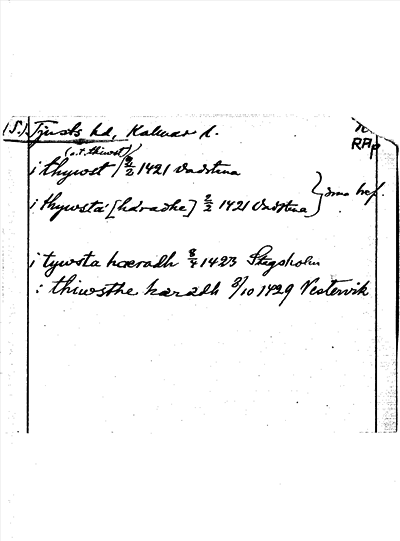 (S.) Tjusts hd, Kalmar l.
RAp
(o.r. thiwst)
i thywst 9/2 1421 Vadstena
i thywsta [háradhe] 9/2 1421 Vadstena } sma bref.
i tywsta hæradh 8/4 1423 Stegsholm
: thiwsthe haradh 3/10 1429 Vestervik